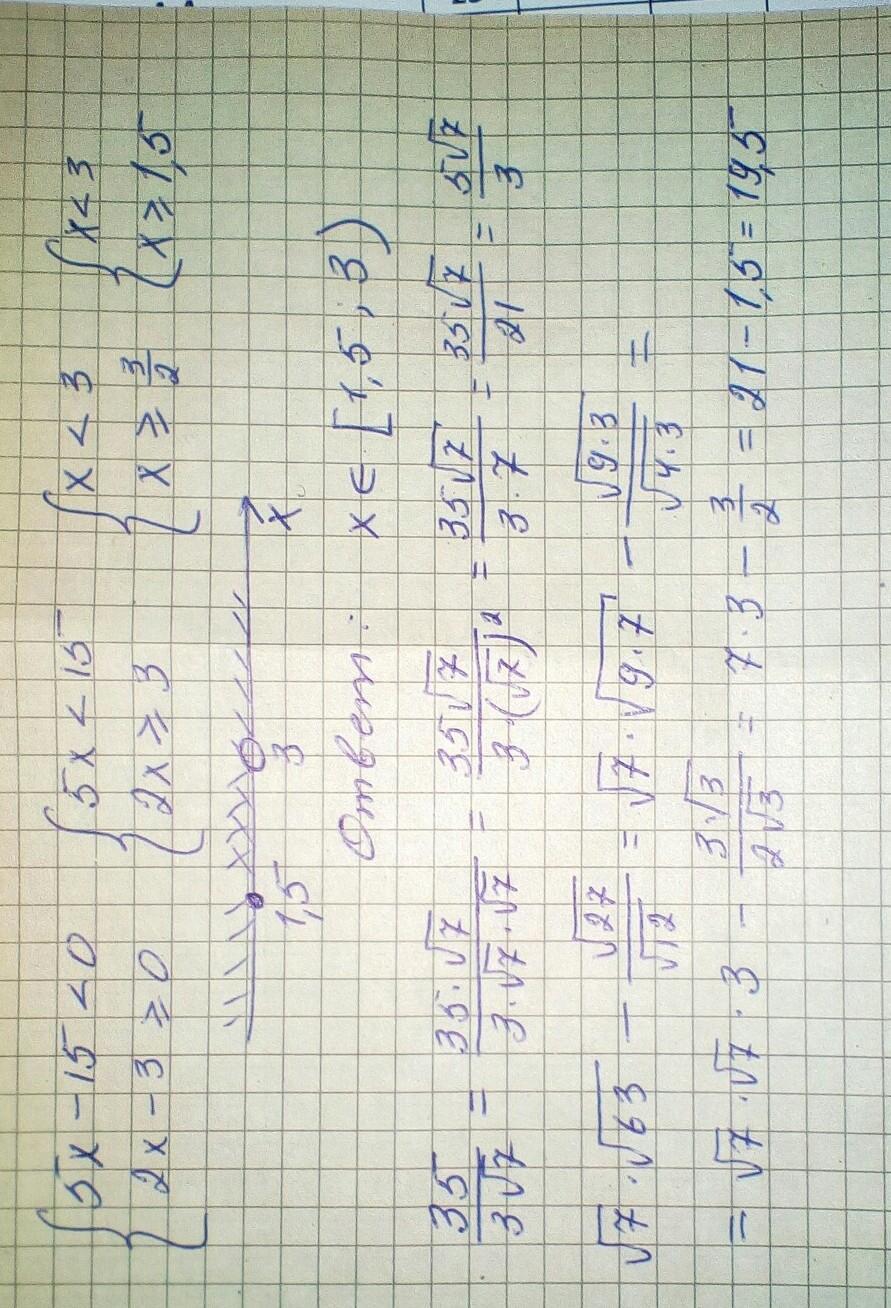 { 5x - 15 < 0 { 5x < 15 { x < 3 { x < 3
{ 2x - 3 ≥ 0 { 2x ≥ 3 { x ≥ 3/2 { x ≥ 1,5
1,5 3 x
Ответ: x ∈ [1,5 ; 3)
35/(3√7) = (35·√7)/(3·√7·√7) = (35√7)/(3·(√7)²) = (35√7)/(3·7) = (35√7)/21 = (5√7)/3
√7·√63 - √27/√12 = √7·√(9·7) - √(9·3)/√(4·3) =
= √7·√7·3 - (3√3)/(2√3) = 7·3 - 3/2 = 21 - 1,5 = 19,5